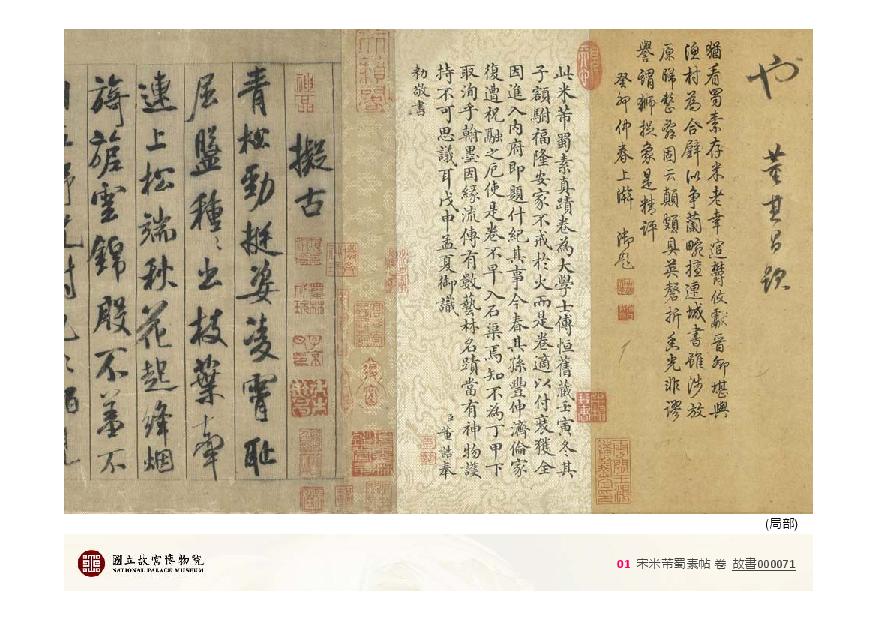 也
董其昌跋
猶看蜀素存米老幸逭鬱攸獻晉卿堪與
漁村為合璧以爭蘭畹擅連城書雖涉放
原歸整 固云顛類具英磬折 光非謬
譽謂獅捉象是精評
癸卯仲春上澣 御題
此米芾蜀素真蹟卷為大學士傅恒舊藏壬寅冬其
子額駙福隆安家不戒於火而是卷適以付裝獲全
因進入內府即題什紀其事今春其孫豐伸濟倫家
復遭祝融之厄使是卷不早入石渠焉知不為丁甲下
取洵乎翰墨因緣流傳有數藝林名蹟當有神物護
持不可思議耳戊申孟夏御識
臣董誥奉
勅敬書
擬古
青松勁挺姿凌霄恥
屈盤種種出枝葉牽
連上松端秋花起絳烟
旖旎雲錦殷不羞不
(局部)
國立故宮博物院
NATIONAL PALACE MUSEUM
01 宋米芾蜀素帖 卷 故書000071